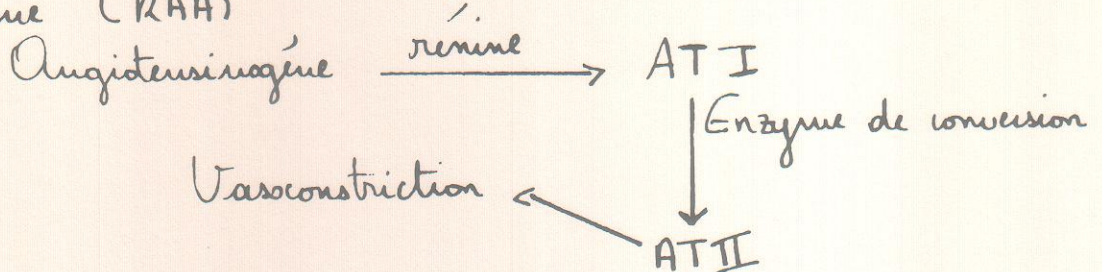 (RAA)
Angiotensinogène rénine ATI
Enzyme de conversion
Vasoconstriction
ATII